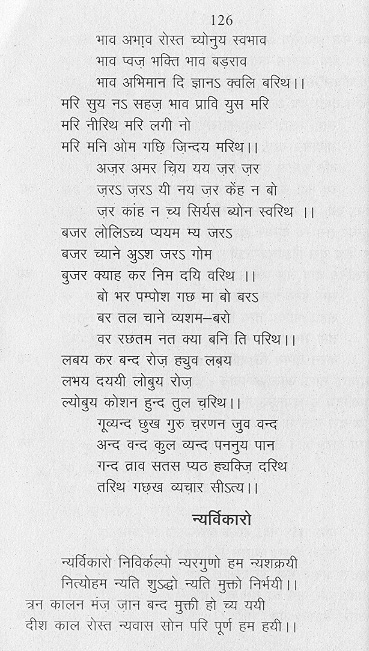 126
भाव अभाव रोस्त च्योनुय स्वभाव
भाव प्वज़ भक्ति भाव बड़राव
भाव अभिमान दि ज्ञानऽ क्वलि बरिथ।।
मरि सुय नऽ सहज़ भाव प्रावि युस मरि
मरि नीरिथ मरि लगी नो
मरि मनि ओम गछि ज़िन्दय मरिथ।।
अज़र अमर च़िय यय ज़र ज़र
ज़रऽ ज़रऽ यी नय ज़र केंह न बो
ज़र कांह न च़्य सिर्यस ब्योन स्वरिथ ।।
बजर लोलिऽच्य प्ययम म्य जरऽ
बजर च्याने अुऽश जरऽ गोम
बुजर क्याह कर निम दयि वरिथ ।।
बो भर पम्पोश गछ मा बो बरऽ
बर तल चाने व्यशम–बरो
वर रछतम नत क्या बनि ति परिथ।।
लबय कर बन्द रोज़ ह्युव लब़य
लभय दययी लोबुय रोज़
ल्योबुय कोशन हुन्द तुल चरिथ।।
गूव्यन्द छुख गुरु च़रणन जुव वन्द
अन्द वन्द कुल व्यन्द पननुय पान
गन्द त्राव सतस प्यठ ह्यक्ज़ि दरिथ
तरिथ गछख व्यचार सीऽत्य।।
न्यर्विकारो
न्यर्विकारो निविर्कल्पो न्यरगुणो हम न्यशक्रयी
नित्योहम न्यति शुऽद्धो न्यति मुक्तो निर्भयी।।
त्रन कालन मंज ज़ान बन्द मुक्ती हो च्य ययी
दीश काल रोस्त न्यवास सोन परि पूर्ण हम हयी।।